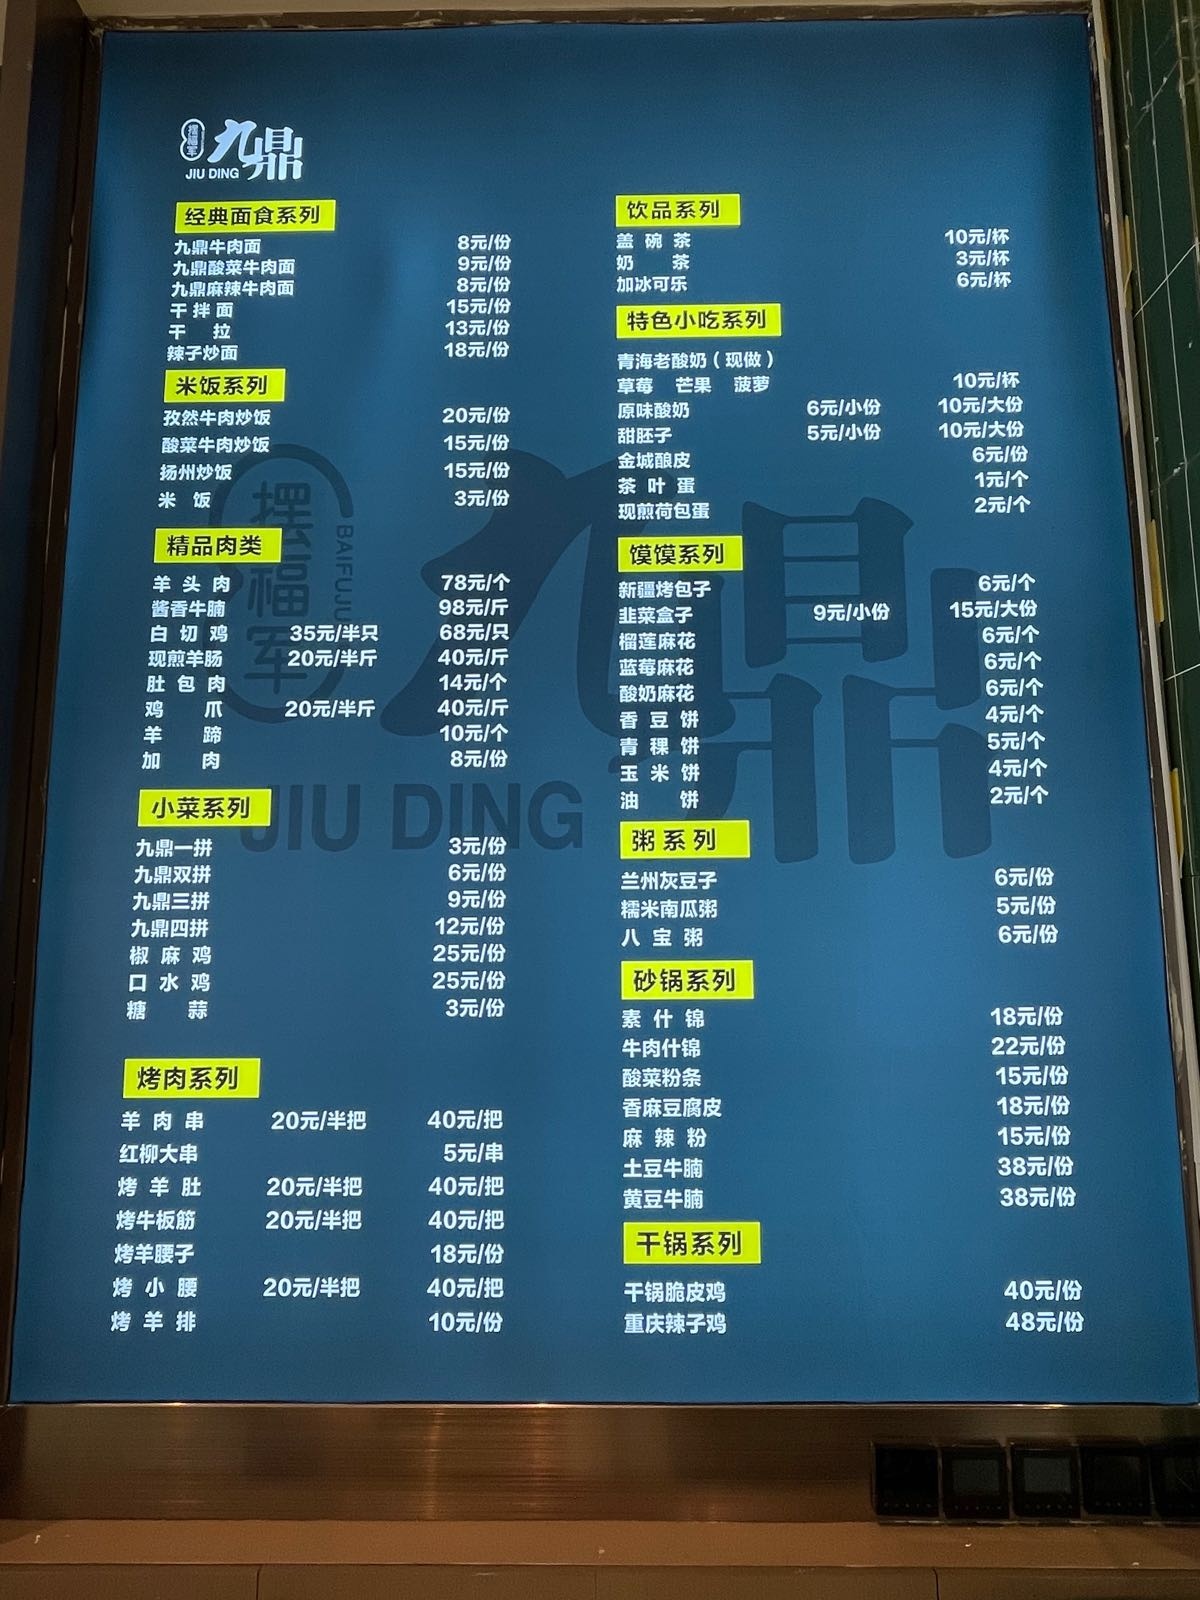 摆福军
九鼎
JIU DING
经典面食系列
九鼎牛肉面 8元/份
九鼎酸菜牛肉面 9元/份
九鼎麻辣牛肉面 8元/份
干拌面 15元/份
干拉 13元/份
辣子炒面 18元/份
米饭系列
孜然牛肉炒饭 20元/份
酸菜牛肉炒饭 15元/份
扬州炒饭 15元/份
米饭 3元/份
精品肉类
羊头肉 78元/个
酱香牛腩 98元/斤
白切鸡 35元/半只 68元/只
现煎羊肠 20元/半斤 40元/斤
肚包肉 14元/个
鸡爪 20元/半斤 40元/斤
羊蹄 10元/个
加肉 8元/份
小菜系列
九鼎一拼 3元/份
九鼎双拼 6元/份
九鼎三拼 9元/份
九鼎四拼 12元/份
椒麻鸡 25元/份
口水鸡 25元/份
糖蒜 3元/份
烤肉系列
羊肉串 20元/半把 40元/把
红柳大串 5元/串
烤羊肚 20元/半把 40元/把
烤牛板筋 20元/半把 40元/把
烤羊腰子 18元/份
烤小腰 20元/半把 40元/把
烤羊排 10元/份
饮品系列
盖碗茶 10元/杯
奶茶 3元/杯
加冰可乐 6元/杯
特色小吃系列
青海老酸奶（现做）
草莓 芒果 菠萝 10元/杯
原味酸奶 6元/小份 10元/大份
甜胚子 5元/小份 10元/大份
金城酿皮 6元/份
茶叶蛋 1元/个
现煎荷包蛋 2元/个
馍馍系列
新疆烤包子 6元/个
韭菜盒子 9元/小份 15元/大份
榴莲麻花 6元/个
蓝莓麻花 6元/个
酸奶麻花 6元/个
香豆饼 4元/个
青稞饼 5元/个
玉米饼 4元/个
油饼 2元/个
粥系列
兰州灰豆子 6元/份
糯米南瓜粥 5元/份
八宝粥 6元/份
砂锅系列
素什锦 18元/份
牛肉什锦 22元/份
酸菜粉条 15元/份
香麻豆腐皮 18元/份
麻辣粉 15元/份
土豆牛腩 38元/份
黄豆牛腩 38元/份
干锅系列
干锅脆皮鸡 40元/份
重庆辣子鸡 48元/份
摆福军
BAIFUJU
九鼎
JIU DING